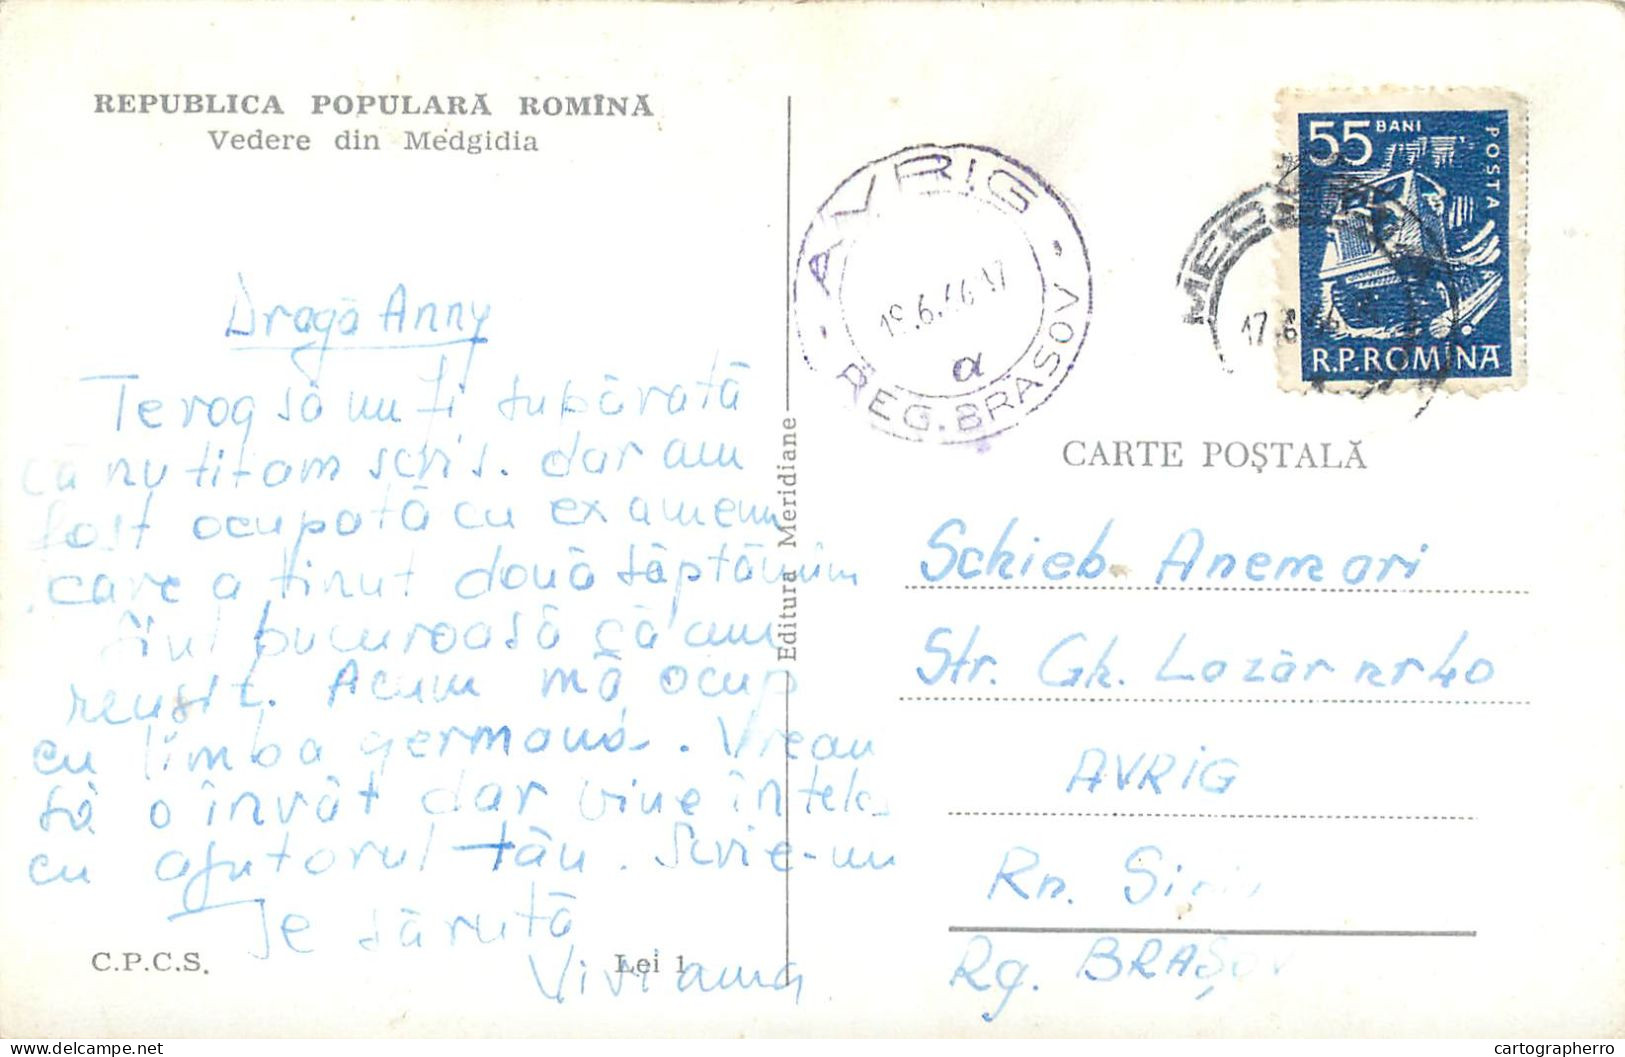 REPUBLICA POPULARĂ ROMÎNĂ
Vedere din Medgidia
Dragă Anny
Te rog să nu fi supărată
că nu ți-am scris. dar am
fost ocupată cu examenu
care a ținut două săptămîni
Sînt bucuroasă că am
reușit. Acum mă ocup
cu limba germană. Vreau
să o învăț dar bine înteles
cu ajutorul tău. Scrie-mi
Te sărută
Viviana
C.P.C.S.
Lei 1
Editura Meridiane
AVRIG
19.6.66.17
α
REG. BRASOV
55 BANI
POSTA
R.P.ROMÎNA
17.6.66
CARTE POȘTALĂ
Schieb Anemari
Str. Gh. Lazăr nr 40
AVRIG
Rn.
Rg. BRAȘOV
Delcampe.net
cartographerro